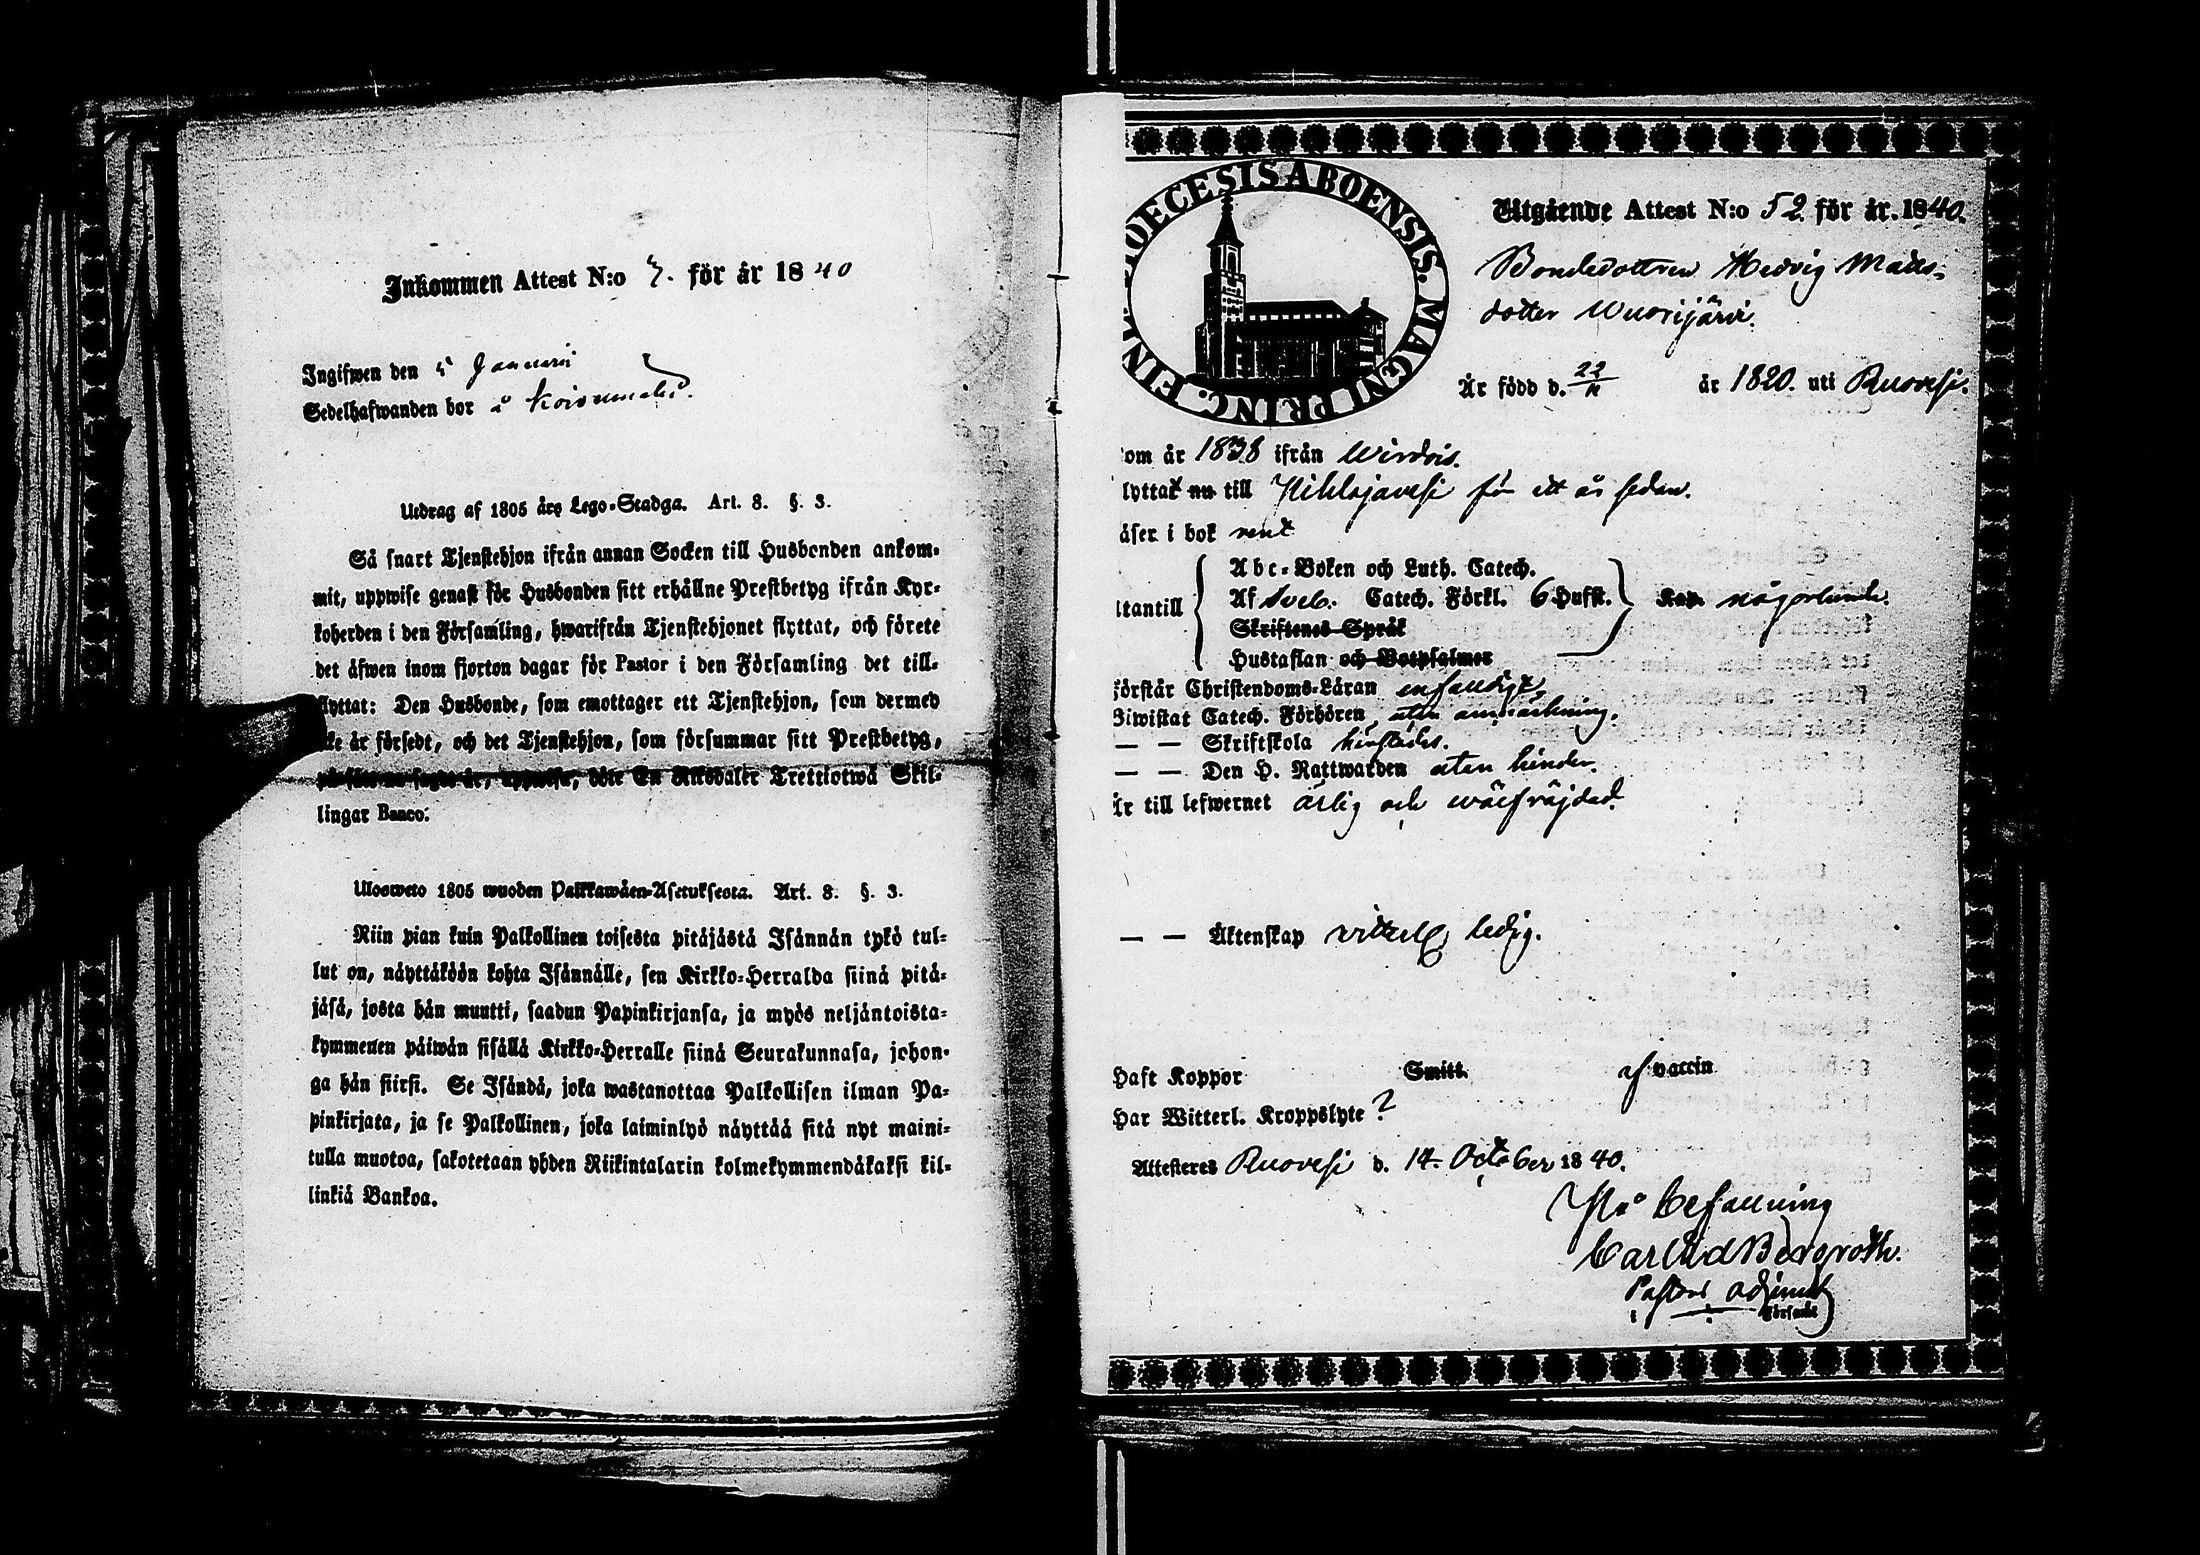 Inkommen Attest N:o 7. för år 1840
Ingifwen den 5 Januarii
Sedelhafwanden bor å
Utdrag af 1805 års Lego-Stadga. Art. 8. §. 3.
Så snart Tjenstehjon ifrån annan Socken till Husbonden ankom-
mit, uppwise genast för Husbonden sitt erhållne Prestbetyg ifrån Kyr-
koherden i den Församling, hwarifrån Tjenstehjonet flyttat, och förete
det äfwen inom fjorton dagar för Pastor i den Församling det till-
flyttat: Den Husbonde, som emottager ett Tjenstehjon, som dermed
icke är försedt, och det Tjenstehjon, som försummar sitt Prestbetyg,
på sätt nu sagdt är, uppwisa, böte En Riksdaler Trettiotwå Skil-
lingar Banco.
Ulosweto 1805 wuoden Palkkawäen-Asetuksesta. Art. 8. §. 3.
Niin pian kuin Palkollinen toisesta pitäjästä Isännän tykö tul-
lut on, näyttäköön kohta Isännälle, sen Kirkko-Herralda siinä pitä-
jäsä, josta hän muutti, saadun Papinkirjansa, ja myös neljäntoista-
kymmenen päiwän sisällä Kirkko-Herralle siinä Seurakunnasa, johon-
ga hän siirsi. Se Isändä, joka wastanottaa Palkollisen ilman Pa-
pinkirjata, ja se Palkollinen, joka laiminlyö näyttää sitä nyt maini-
tulla muotoa, sakotetaan yhden Riikintalarin kolmekymmendäkaksi kil-
linkiä Bankoa.
DIOECESIS ABOENSIS. MAGNI PRINC. FINL.
Utgående Attest N:o 52. för år. 1840.
Bondedottren Hedvig Matts-
dotter Wuorijärvi.
Är född d. 22/11 år 1820. uti Ruovesi.
om år 1838 ifrån Wirdois.
lyttat nu till Pihlajavesi för ett år sedan.
äser i bok rent
Abc-Boken och Luth. Catech.
tantill Af Sveb. Catech. Förkl. 6 Hufst. Kap. någorlunda.
Skriftenes Språk
Hustaflan och Botpsalmer
förstår Christendoms-Läran enfaldigt,
Biwistat Catech. Förhören utan anmärkning.
— — Skriftskola härstädes.
— — Den H. Nattwarden utan hinder.
Är till lefwernet ärlig och wälfräjdad.
— — Äktenskap ledig.
Haft Koppor Smitt. af vaccin
Har Witterl. Kroppslyte ?
Attesteres Ruovesi d. 14. October 1840.
På befallning
Carl Bergroth.
Pastors adjunct
i Församl.